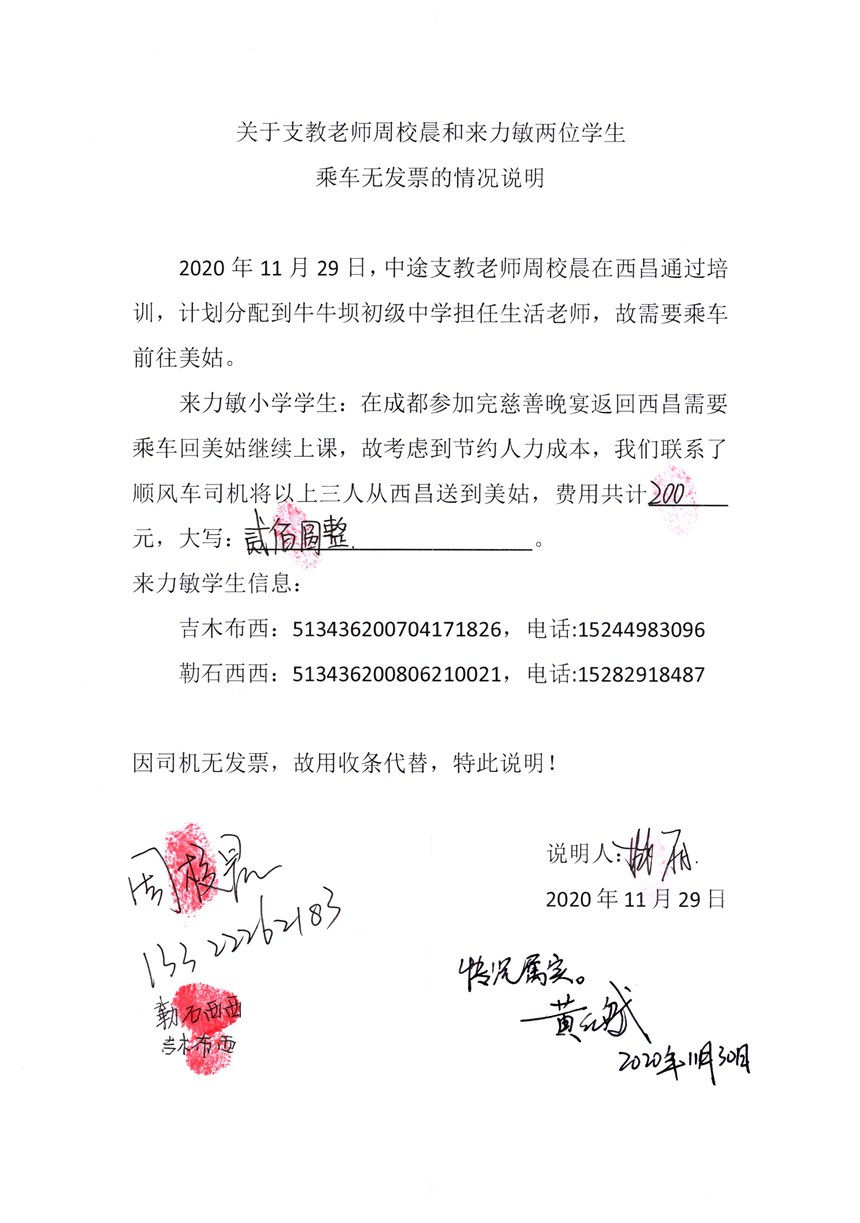 关于支教老师周校晨和来力敏两位学生
乘车无发票的情况说明
2020 年 11 月 29 日，中途支教老师周校晨在西昌通过培
训，计划分配到牛牛坝初级中学担任生活老师，故需要乘车
前往美姑。
来力敏小学学生：在成都参加完慈善晚宴返回西昌需要
乘车回美姑继续上课，故考虑到节约人力成本，我们联系了
顺风车司机将以上三人从西昌送到美姑，费用共计200
元，大写：贰佰圆整。
来力敏学生信息：
吉木布西：513436200704171826，电话:15244983096
勒石西西：513436200806210021，电话:15282918487
因司机无发票，故用收条代替，特此说明！
说明人:
2020 年 11 月 29 日
周校晨
13322262183
勒石西西
吉木布西
情况属实。
黄
2020年11月30日